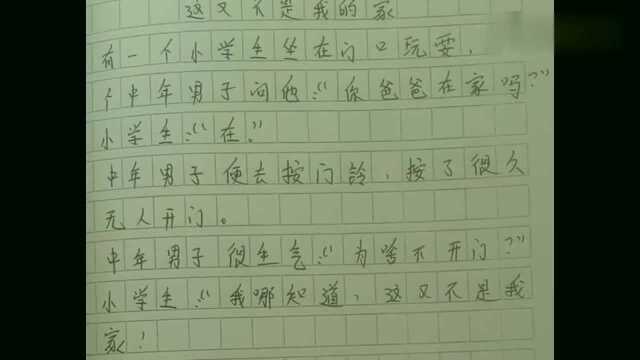 这又不是我的家
有一个小学生坐在门口玩耍,
个中年男子问他:“你爸爸在家吗?”
小学生:“在。”
中年男子便去按门铃,按了很久
无人开门。
中年男子很生气:“为啥不开门?”
小学生:“我哪知道,这又不是我
家!